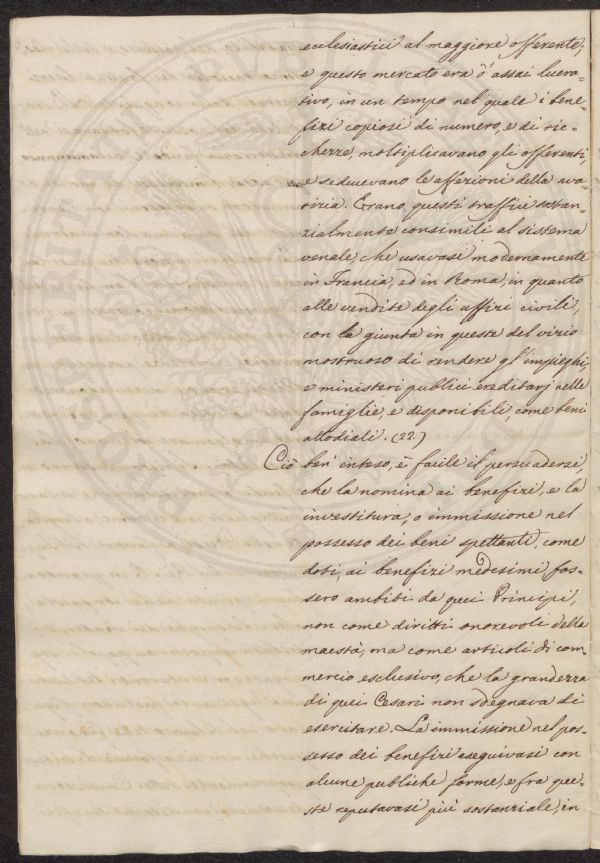 ecclesiastici al maggiore offerente;
e questo mercato era d'assai lucro-
tivo, in un tempo nel quale i bene-
fizi copiosi di numero, e di ric-
chezze, moltiplicavano gli offerenti,
e seducevano le affezioni della ava-
rizia. Erano questi traffici sostan-
zialmente consimili al sistema
venale, che usavasi modernamente
in Francia, ed in Roma, in quanto
alle vendite degli uffizi civili,
con la giunta in queste del vizio
mostruoso di rendere gl'impieghi,
e ministeri publici ereditarj nelle
famiglie, e disponibili, come beni
allodiali. (22.)
Ciò ben inteso, è facile il persuadersi,
che la nomina ai benefizi, e la
investitura, o immissione nel
possesso dei beni spettanti, come
doti, ai benefizi medesimi fos-
sero ambiti da quei Principi,
non come diritti onorevoli della
maestà, ma come articoli di com-
mercio esclusivo, che la grandezza
di quei Cesari non sdegnava di
esercitare. La immissione nel pos-
sesso dei benefizi eseguivasi con
alcune publiche forme, e fra que-
ste reputavasi più sostanziale, in